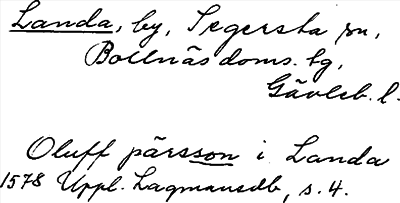 Landa, by, Segersta sn,
Bollnäs doms. tg,
Gävleb. l.
Oluff pärsson i Landa
1578 Uppl. Lagmansdb, s. 4.